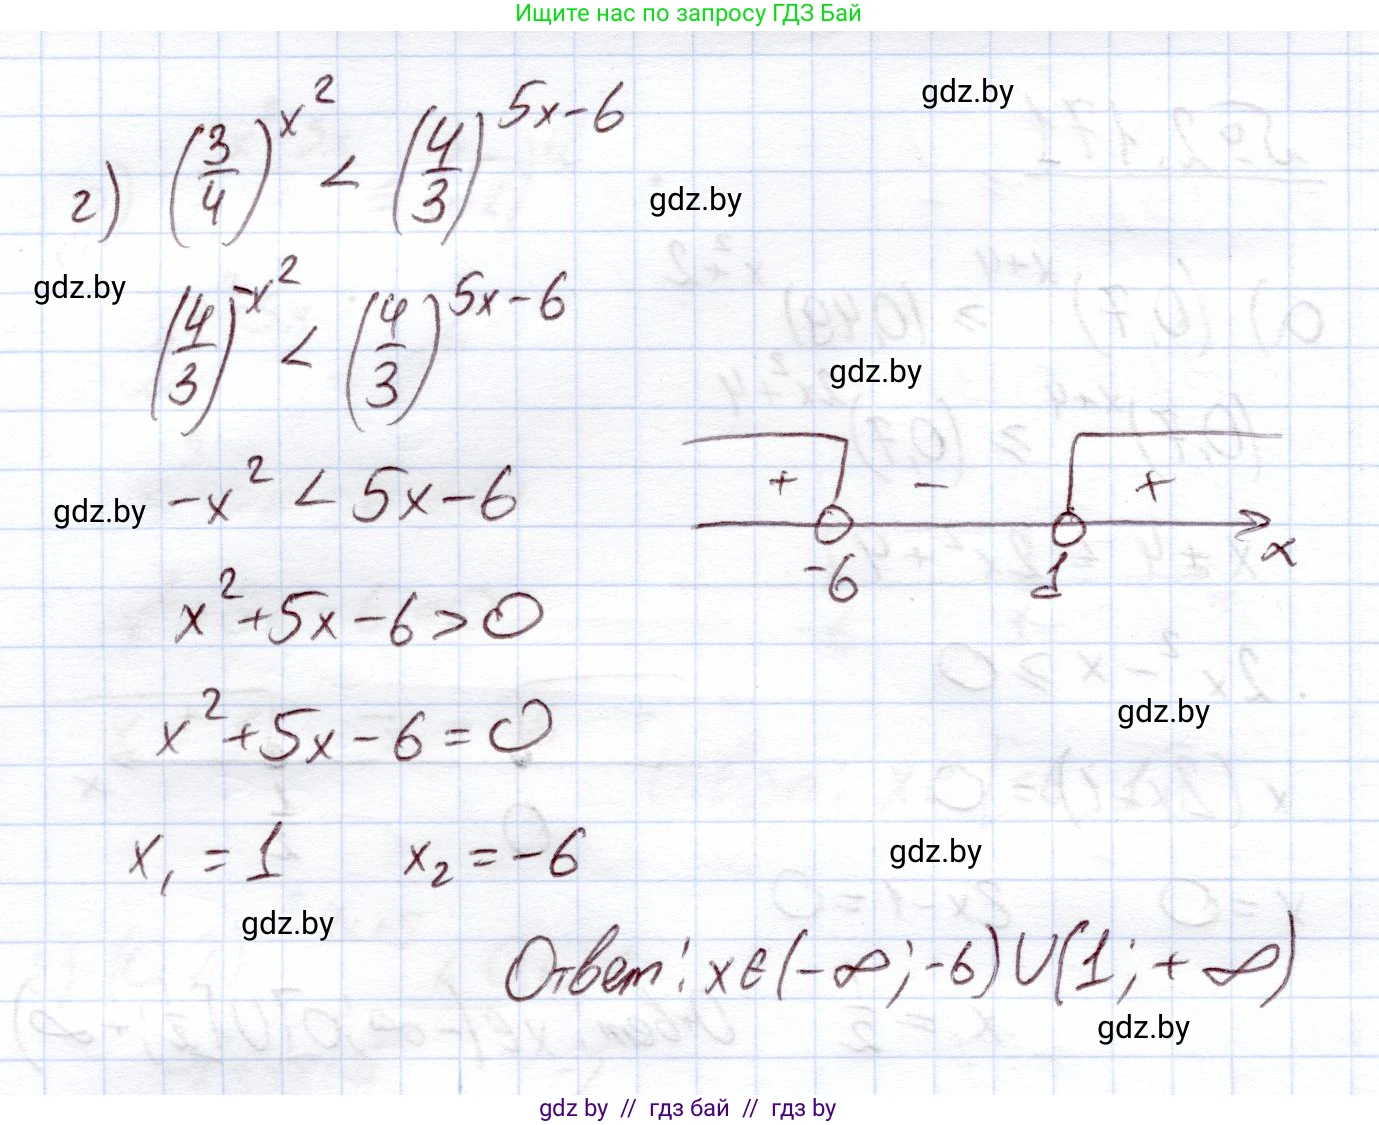 Ищите нас по запросу ГДЗ Бай
gdz.by
г) (3/4)^x² < (4/3)^5x-6
gdz.by
gdz.by
(4/3)^-x² < (4/3)^5x-6
gdz.by
+ - +
gdz.by
-x² < 5x-6
-6 1 x
x²+5x-6>0
gdz.by
x²+5x-6=0
gdz.by
x₁ = 1 x₂ = -6
gdz.by
Ответ: x∈(-∞;-6)∪(1;+∞)
gdz.by
gdz by // гдз бай // гдз by